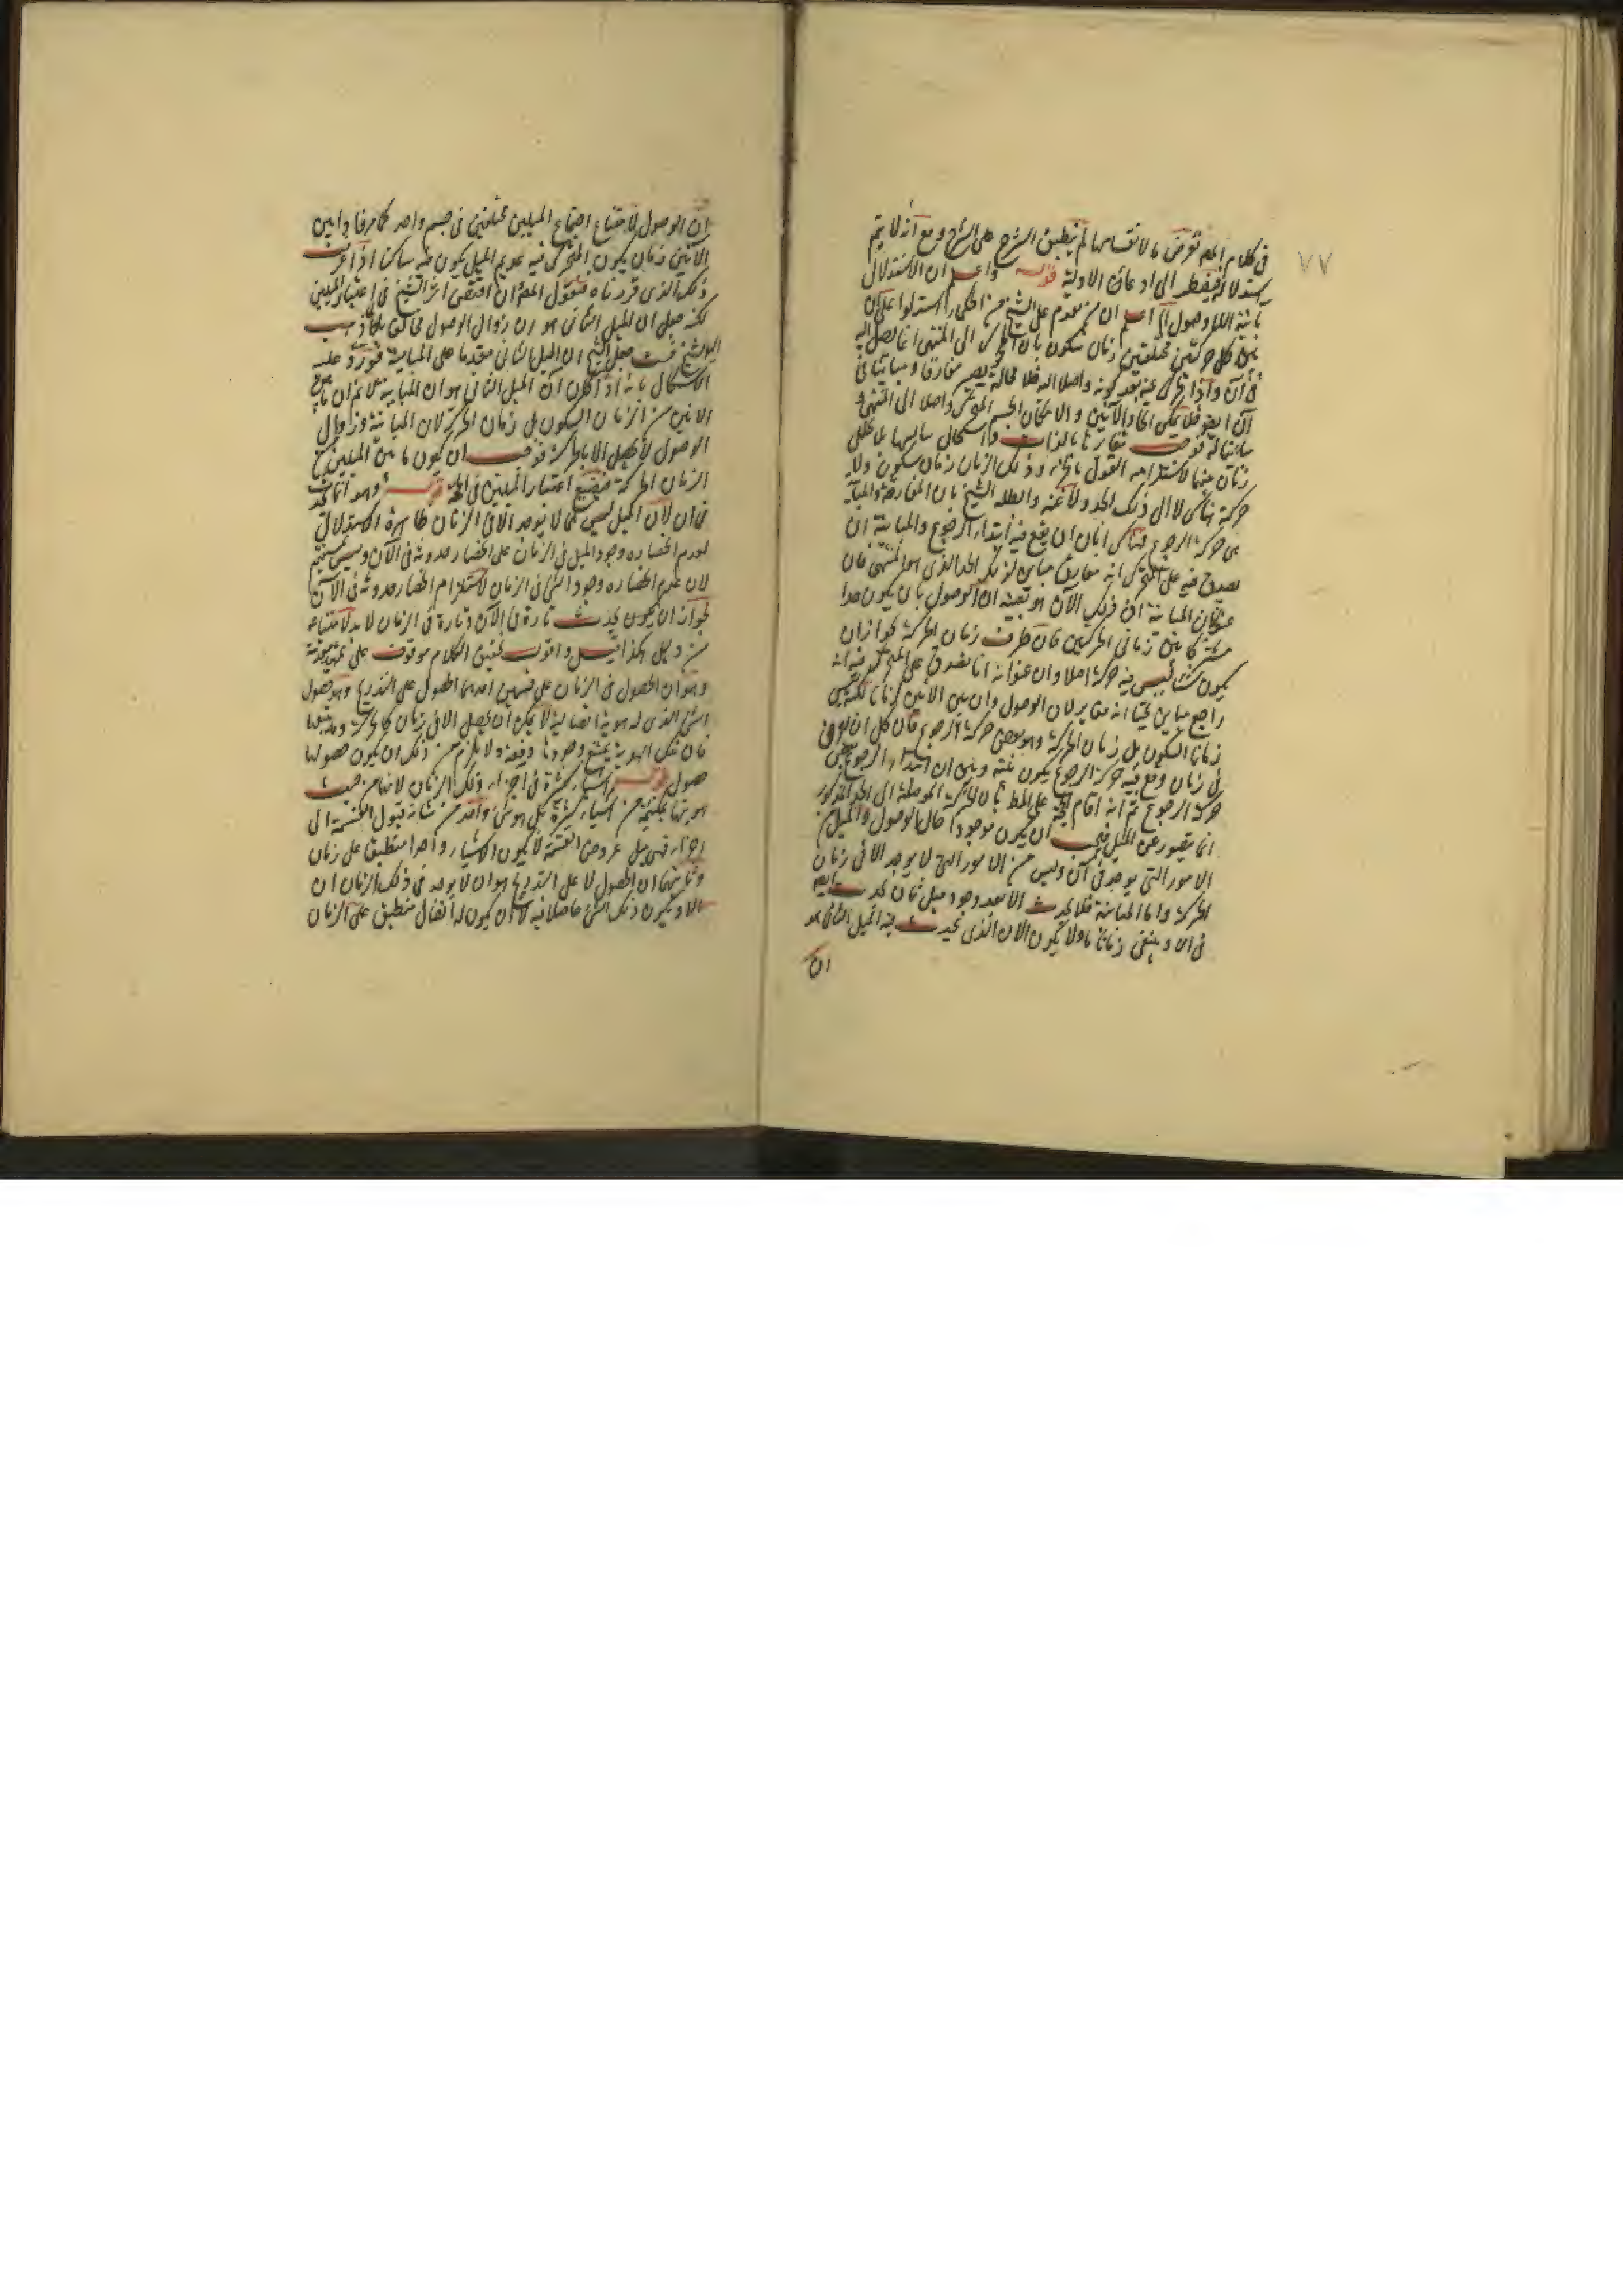 ٧٧
في كلام المص تعرض ما لانقسامها لم ينطبق الشرح على الشرح ومع انه لا يتم
استدلاله فيضطر الى ادعائ الاولية قوله واعلم ان الاستدلال
بانية اللاوصول اعلم ان من تقدم على الشيخ من الحكماء استدلوا على ان
بين كل حركتين مختلفتين زمان سكون بان المتحرك الى المنتهى انما يصل اليه
في آن واذا تحرك عنه بعد كونه واصلا اليه فلا محالة يصير مفارقا ومباينا في
آن ايضا فلا يمكن اتحاد الآنين والا لكان الجسم المتحرك واصلا الى المنتهى و
مباينا له فوجب تغايرهما بالذات واستحال تتاليهما بلا تخلل
زمان بينهما لاستلزامه القول بالجزء وذلك الزمان زمان سكون ولا
حركة هناك لا الى ذلك الحد ولا عنه وابطله الشيخ بان المفارقة والمباينة
هي حركة الرجوع فهناك انان ان يقع فيه ابتداء الرجوع والمباينة ان
يصدق فيه على المتحرك انه مفارق مباين لذلك الحد الذي هو المنتهى فان
عنوان المباينة ان ذلك الآن هو بعينه ان الوصول بان يكون حدا
مشتركا بين زماني الحركتين فان طرف زمان الحركة يجوز ان
يكون شيئا ليس فيه حركة اصلا وان عنوا به انا يصدق على المتحرك فيه انه
راجع مباين فحينئذ انه مغاير لان الوصول وان بين الانين زمانا لكنه ليس
زمان السكون بل زمان الحركة وهو بعض حركة الرجوع فان كل ان يفرض
في زمان وقع فيه حركة الرجوع يكون بينه وبين ان ابتداء الرجوع بعض
حركة الرجوع ثم انه اقام الحجة على المط بان الحركة الموصلة الى الحد المذكور
انما تصدر عن الميل فيجب ان يكون موجودا حال الوصول والميل من
الامور التي يوجد في آن وليس من الامور التي لا يوجد الا في زمان
كالحركة واما المباينة فلا يحدث الا بعد وجود ميل ثان يحدث ايضا
في ان ويبقى زمانا ما ولا يكون الان الذي يحدث فيه الميل الثاني هو
ان
ان الوصول لامتناع اجتماع الميلين مختلفين في جسم واحد كما مر فاذا بين
الانين زمان يكون المتحرك فيه عديم الميل يكون فيه ساكنا اذا عرفت
ذلك الذي قررناه فنقول المص ان اقتفى اثر الشيخ في اعتبار الميلين
لكنه جعل ان الميل الثاني هو ان زوال الوصول مخالفا لما ذهب
اليه الشيخ حيث جعل الشيخ ان الميل الثاني مقدما على المباينة فورد عليه
الاشكال بانه اذا كان ان الميل الثاني هو ان المباينة فلا نم ان ما بين
الانين من الزمان السكون بل زمان الحركة لان المباينة وزوال
الوصول لا يحصل الا بالحركة فوجب ان يكون ما بين الميلين من
الزمان الحركة فيضيع اعتبار الميلين في الحجة قوله وهو انما يحدث
في ان لان الميل ليس مما لا يوجد الا في الزمان ظاهره الاستدلال
بعدم انحصاره وجود الميل في الزمان على انحصار حدوثه في الآن وليس بمستقيم
لان عدم انحصاره وجود الشئ في الزمان لا يستلزم انحصار حدوثه في الآن
لجواز ان يكون يحدث تارة في الآن وتارة في الزمان لا بد لامتناعه
من دليل هكذا قيل واقول تحقيق الكلام موقوف على تمهيد مقدمة
وهو ان الحصول في الزمان على قسمين احدهما الحصول على التدريج وهو حصول
الشئ الذي له هوية اتصالية لا يمكن ان يحصل الا في زمان كالحركة وما يتبعها
فان تلك الهوية يمتنع وجودها دفعة ولا يلزم من ذلك ان يكون حصولها
حصول اشياء كثيرة في اجزاء ذلك الزمان لانها من حيث
هويتها ليست من اشياء كثيرة بل هو شئ واحد من شانه قبول القسمة الى
اجزاء فهي قبل عروض القسمة لا يكون الا شيئا واحدا منطبقا على زمان
وثانيهما ان الحصول لا على التدريج هو ان لا يوجد في ذلك الزمان ان
الا ويكون ذلك الشئ حاصلا فيه لا ان يكون له اتصال منطبق على الزمان